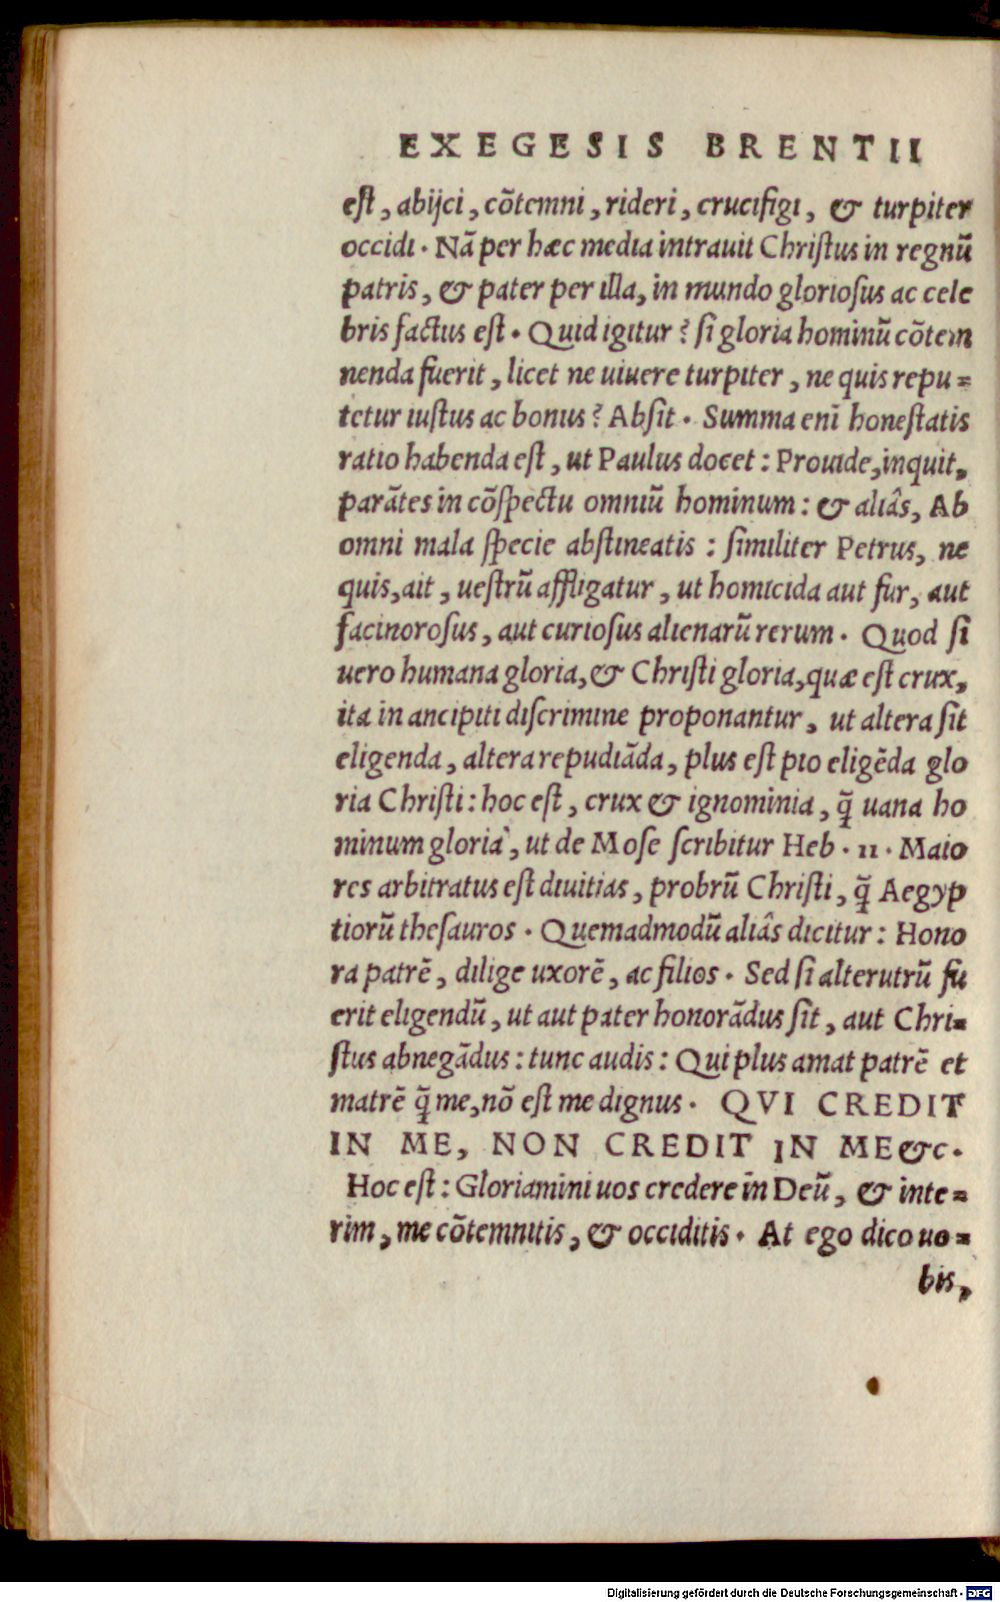 EXEGESIS BRENTII
est, abijci, cõtemni, rideri, crucifigi, & turpiter
occidi. Nã per hæc media intrauit Christus in regnũ
patris, & pater per illa, in mundo gloriosus ac cele
bris factus est. Quid igitur? si gloria hominũ cõtem
nenda fuerit, licet ne uiuere turpiter, ne quis repu=
tetur iustus ac bonus? Absit. Summa enĩ honestatis
ratio habenda est, ut Paulus docet: Prouide, inquit,
parãtes in cõspectu omniũ hominum: & aliâs, Ab
omni mala specie abstineatis: similiter Petrus, ne
quis, ait, uestrũ affligatur, ut homicida aut fur, aut
facinorosus, aut curiosus alienarũ rerum. Quod si
uero humana gloria, & Christi gloria, quæ est crux,
ita in ancipiti discrimine proponantur, ut altera sit
eligenda, altera repudiãda, plus est pio eligẽda glo
ria Christi: hoc est, crux & ignominia, q̃ uana ho
minum gloria, ut de Mose scribitur Heb. 11. Maio
res arbitratus est diuitias, probrũ Christi, q̃ Aegyp
tiorũ thesauros. Quemadmodũ aliâs dicitur: Hono
ra patrẽ, dilige uxorẽ, ac filios. Sed si alterutrũ fu
erit eligendũ, ut aut pater honorãdus sit, aut Chri=
stus abnegãdus: tunc audis: Qui plus amat patrẽ et
matrẽ q̃ me, nõ est me dignus. QVI CREDIT
IN ME, NON CREDIT IN ME &c.
Hoc est: Gloriamini uos credere in Deũ, & inte=
rim, me cõtemnitis, & occiditis. At ego dico uo=
bis,
Digitalisierung gefördert durch die Deutsche Forschungsgemeinschaft - DFG